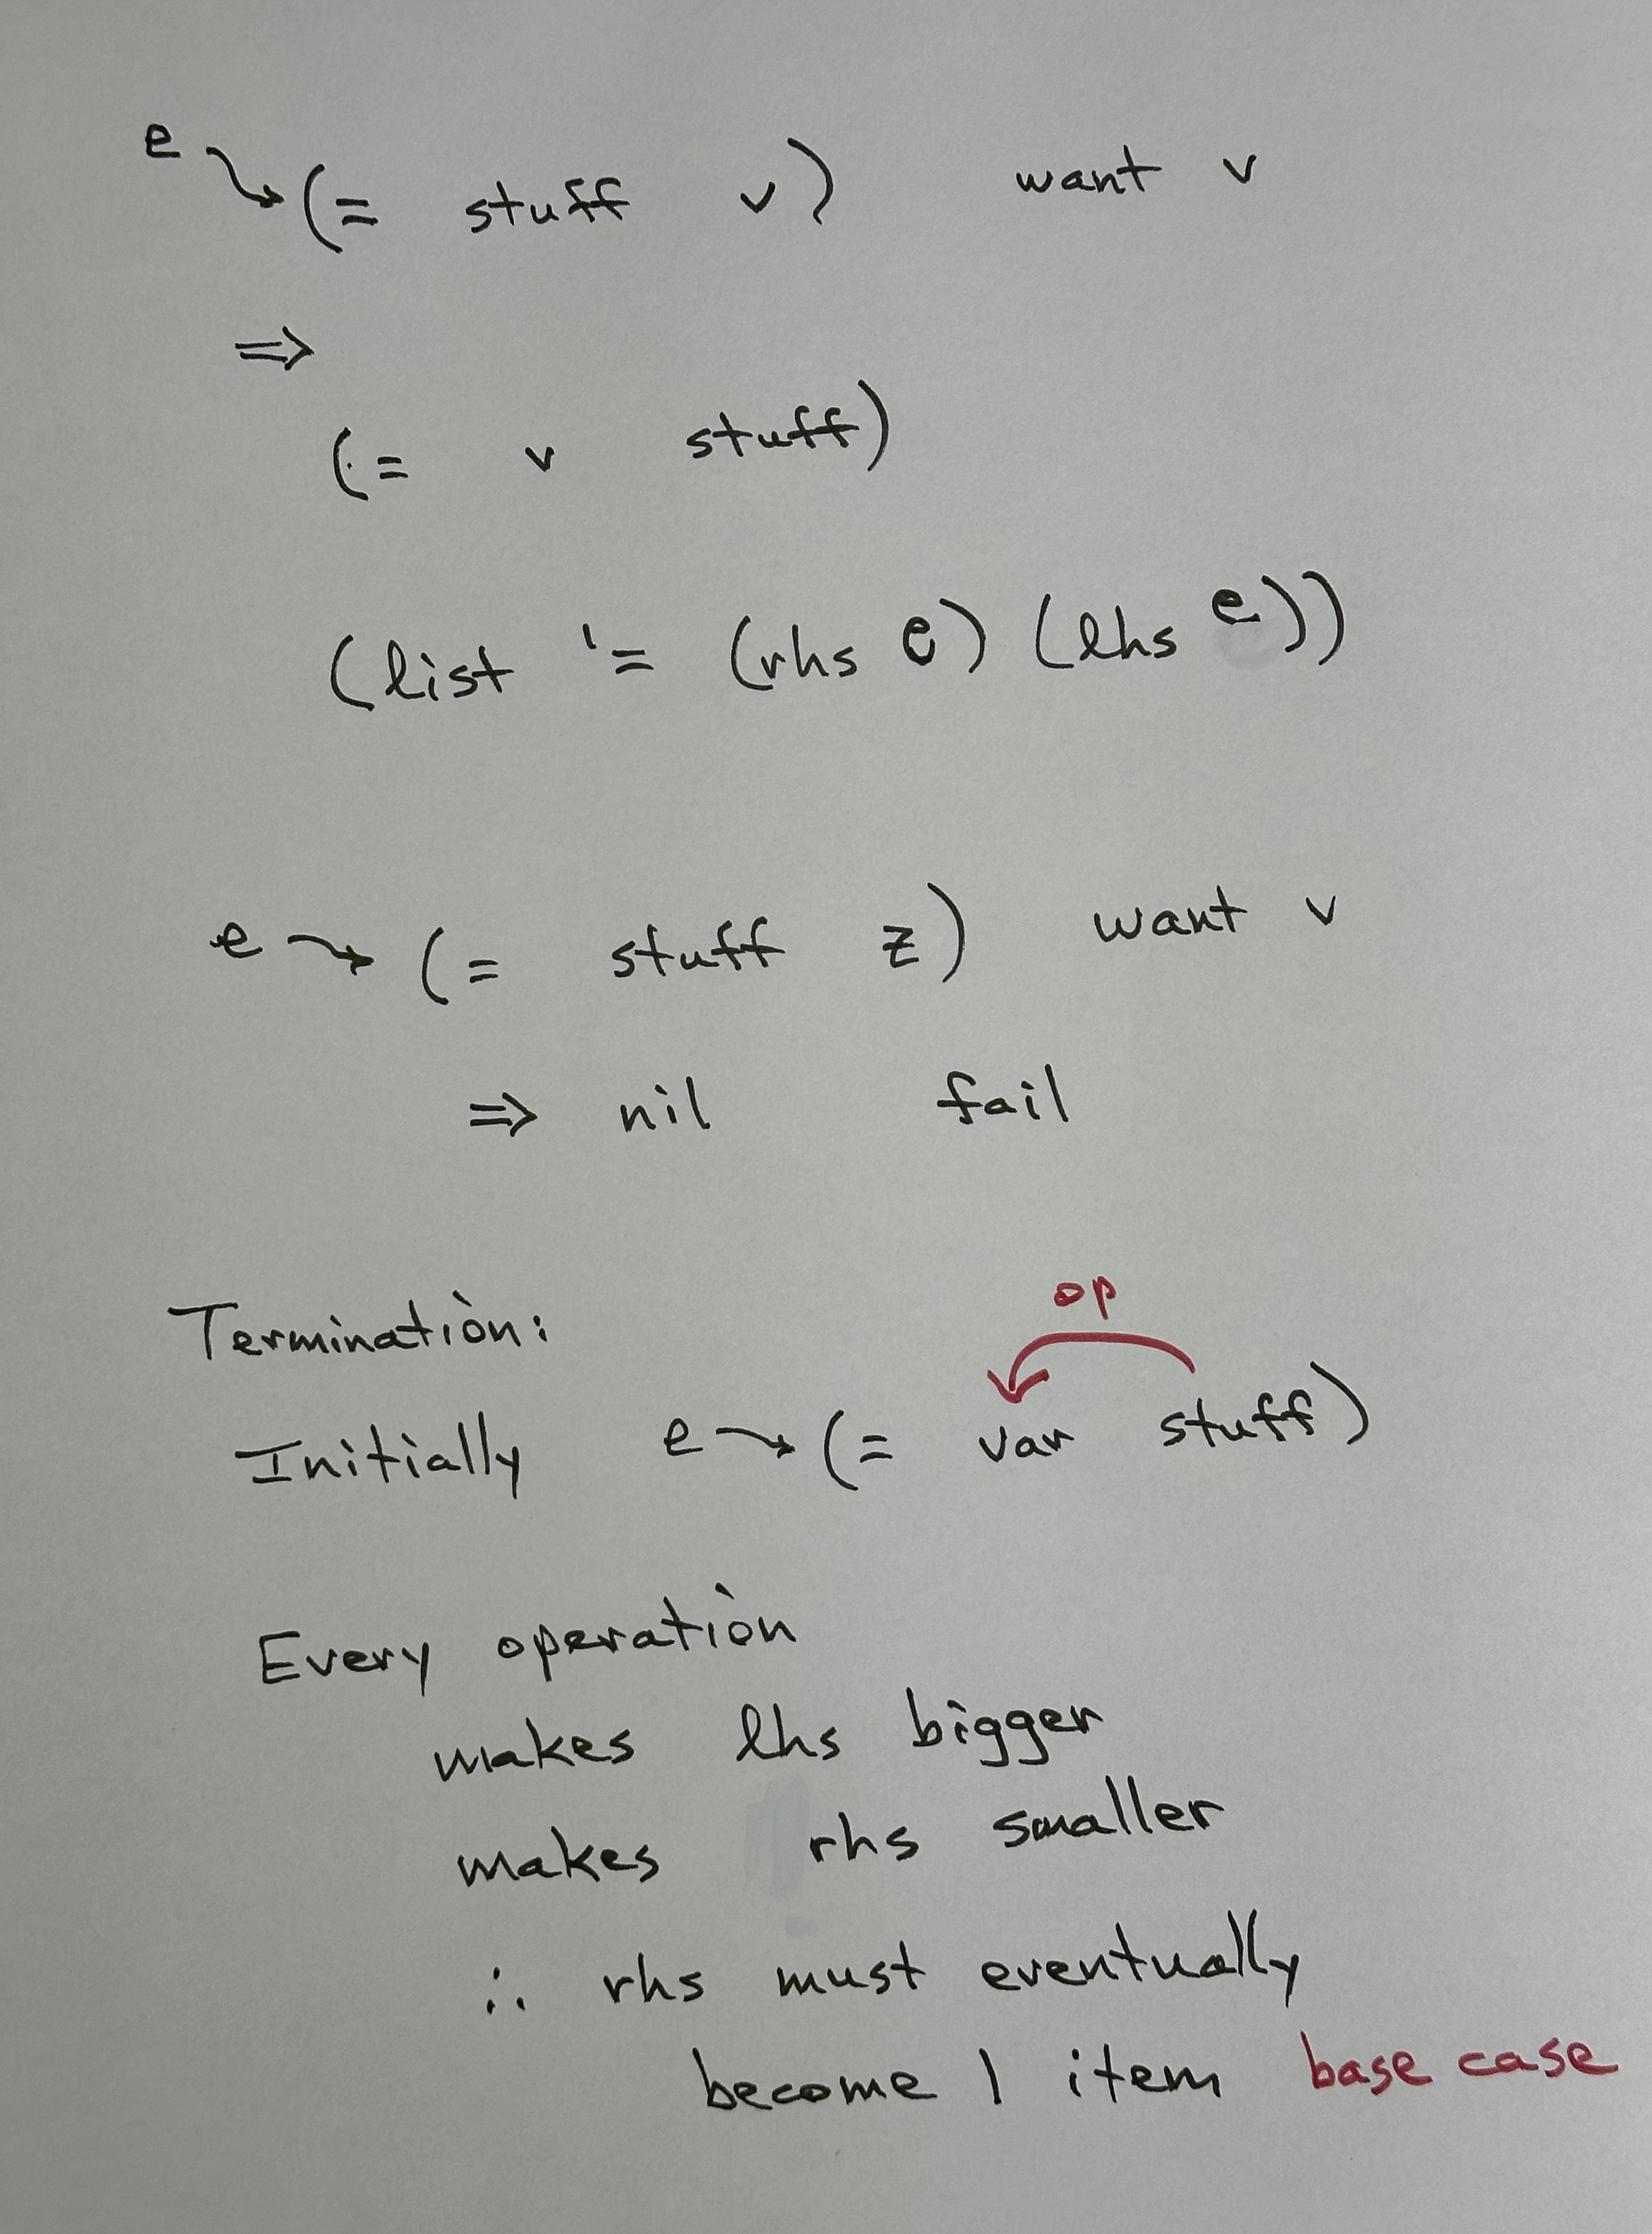 e → (= stuff v) want v
⇒
(= v stuff)
(list '= (rhs e) (lhs e))
e → (= stuff z) want v
⇒ nil fail
Termination:
op
Initially e → (= var stuff)
Every operation
makes lhs bigger
makes rhs smaller
∴ rhs must eventually
become 1 item base case